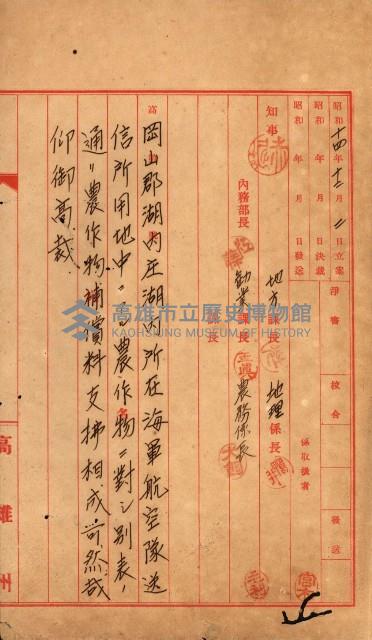 昭和十四年十二月 日立案
昭和 年 月 日決裁
昭和 年 月 日發送
淨書
校合
發送
係取扱者
知事
地方課長
地理係長
內務部長
勸業課長
農務係長
課長
岡山郡湖內庄湖內所在海軍航空隊送
信所用地中ノ農作物ニ對シ別表ノ
通リ農作物補償料支拂相成可然哉
仰御高裁
高雄州
高雄市立歷史博物館
KAOHSIUNG MUSEUM OF HISTORY